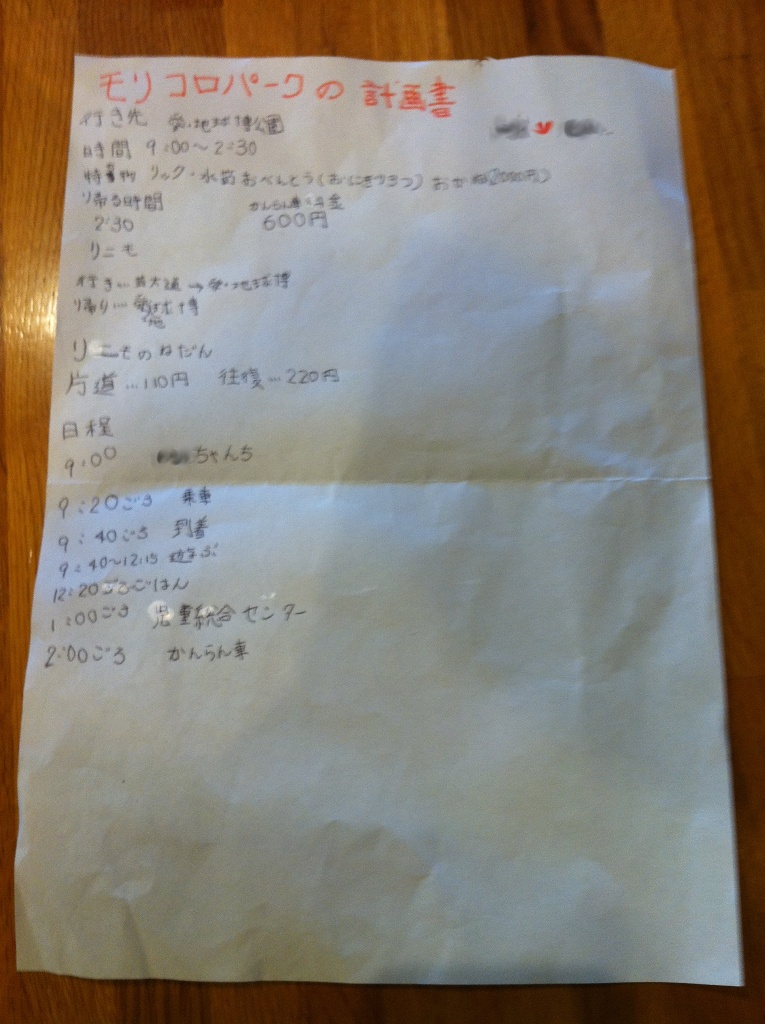 モリコロパークの計画書
行き先 愛・地球博公園
時間 9:00〜2:30
特物 リック・水筒おべんとう(おにぎり3つ) おかね(2000円)
り帰る時間 かんらん車の料金
2:30 600円
リニモ
行き…芸大通→愛・地球博
り帰り…愛地球博
リニモのねだん
片道…110円 往復…220円
日程
9:00 ちゃんち
9:20ごろ 乗車
9:40ごろ 到着
9:40〜12:15 遊ぶ
12:20ごろごはん
1:00ごろ 児童総合センター
2:00ごろ かんらん車